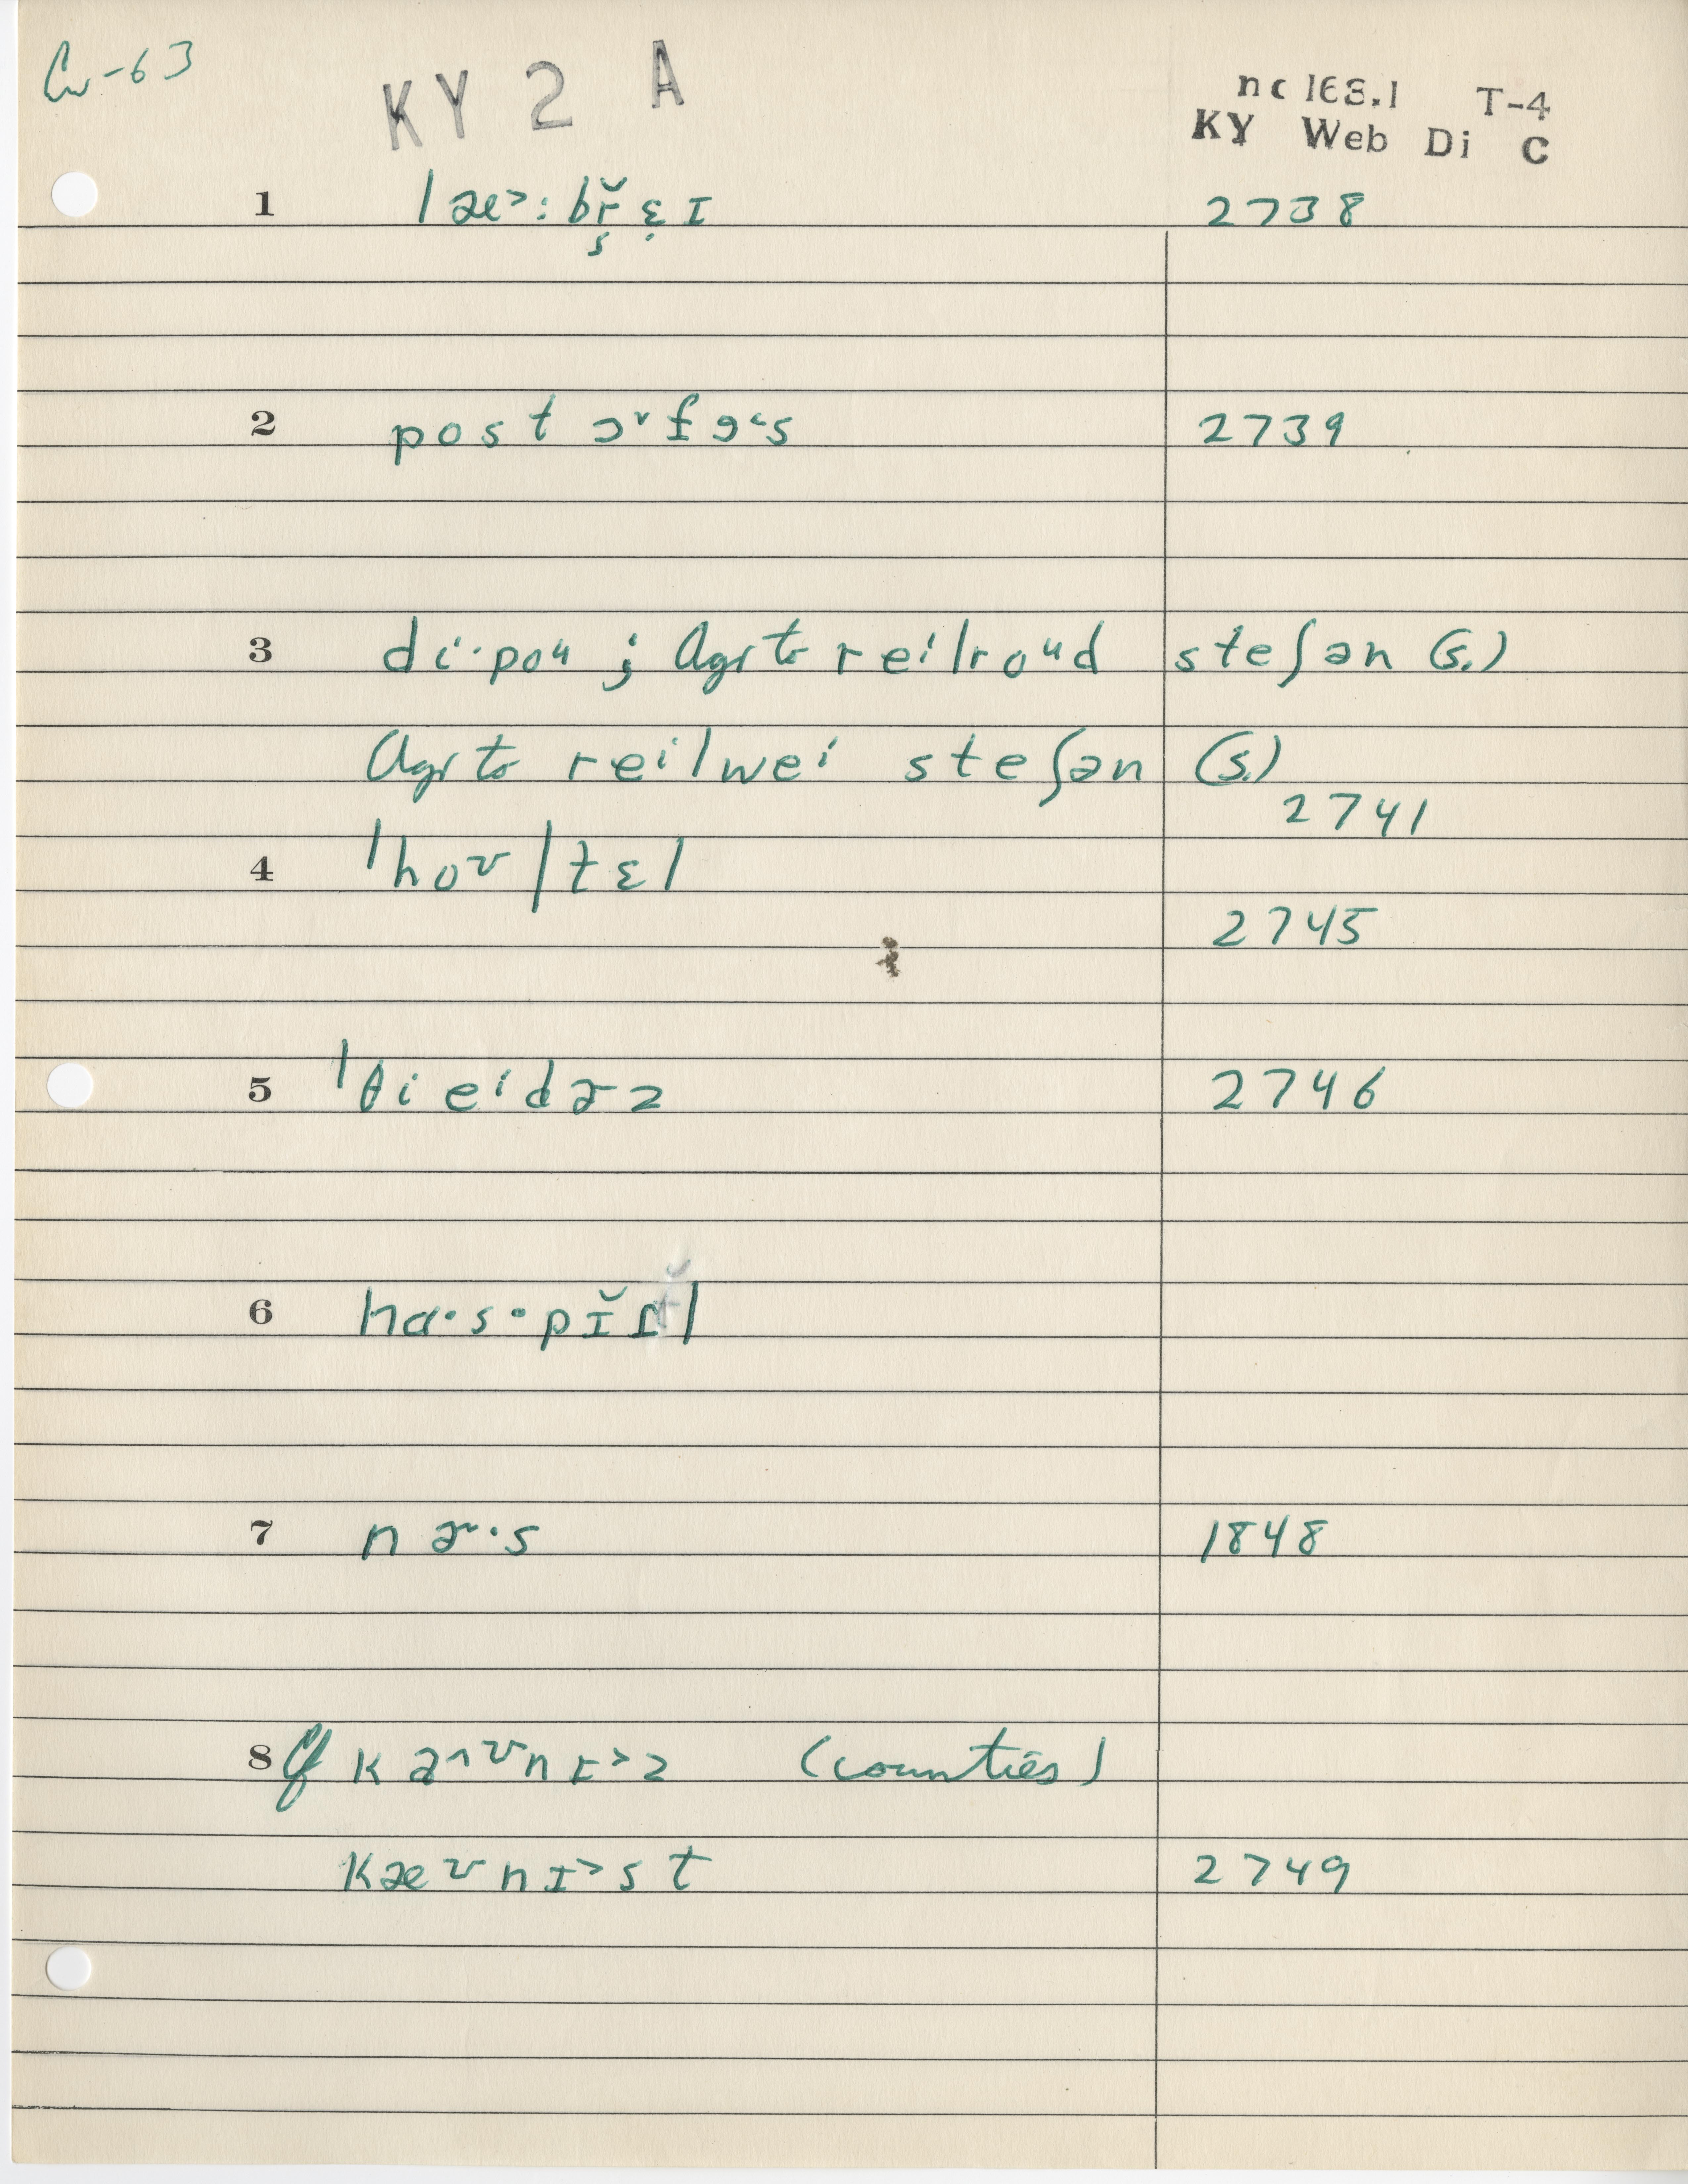 Cw-63
KY 2 A
nc 163.1 T-4
KY Web Di C
1 lae˃: bř ε̣ ɪ 2738
ʂ
2 post ɔ˅fə˂s 2739
3 di·poᵘ ; Agrto reⁱlroᵘd steʃən (s.)
Agrto reⁱlweⁱ steʃən (s.)
2741
4 ˈhoʊ|tɛl
2745
5 ˈθieⁱdɚz 2746
6 hɑ·s·pĭ l
7 nɚ·s 1848
8 cf kaʊnɪ˃z (counties)
kæʊnɪ˃st 2749